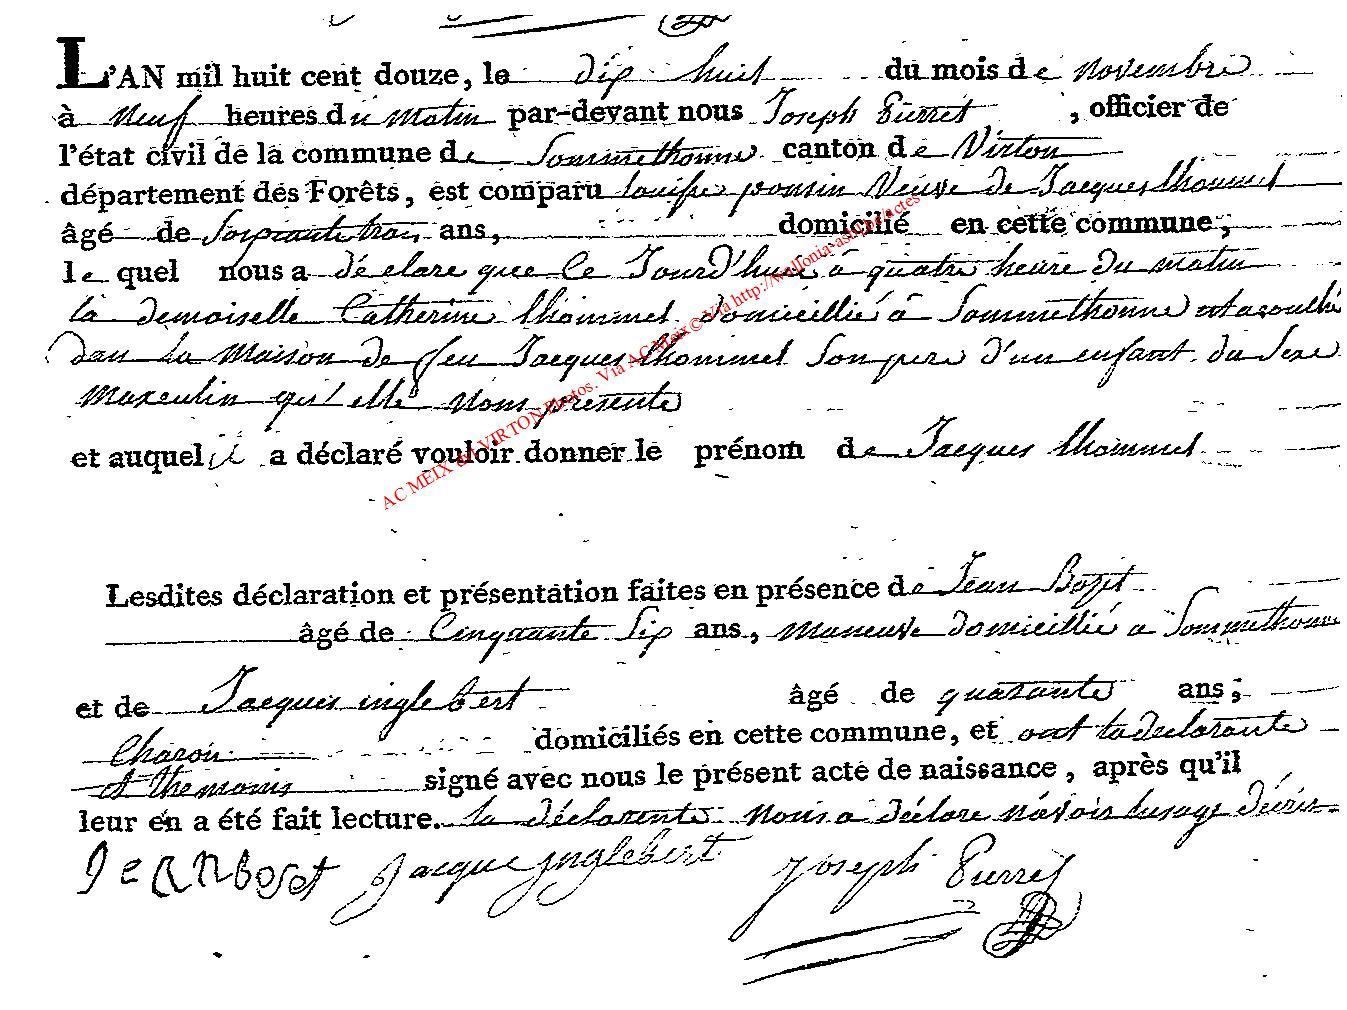 L'AN mil huit cent douze, le dix huit du mois de novembre
à Neuf heures du Matin par-devant nous Joseph Pierret, officier de
l'état civil de la commune de Sommethonne canton de Virton
département des Forêts, est comparu louise ponsin Veuve de Jacques thommet
âgé de Soixante trois ans, domicilié en cette commune;
le quel nous a déclare que Ce Jourd'huie à quatre heure du matin
la demoiselle Catherine thommet domicillié à Sommethonne est acouchée
dan La Maison de feu Jacques thommet Son pere d'un enfant du Sexe
Maxculin qu'elle Nous presente
et auquel il a déclaré vouloir donner le prénom de Jacques thommet
AC MEIX dvt VIRTON Photos. Via AC Meix © Via http://wallonia-asbl.be/actes
Lesdites déclaration et présentation faites en présence de Jean Bozet
âgé de Cinquante Six ans, maneuve domicillié a Sommethonne
et de Jacques inglebert âgé de quarante ans;
Charon domiciliés en cette commune, et ont la declarante
et themoins signé avec nous le présent acte de naissance, après qu'il
leur en a été fait lecture. la déclarente nous a déclare n'avoir lusage décris
JEANBoset Jacque Jnglebert Joseph Pierret